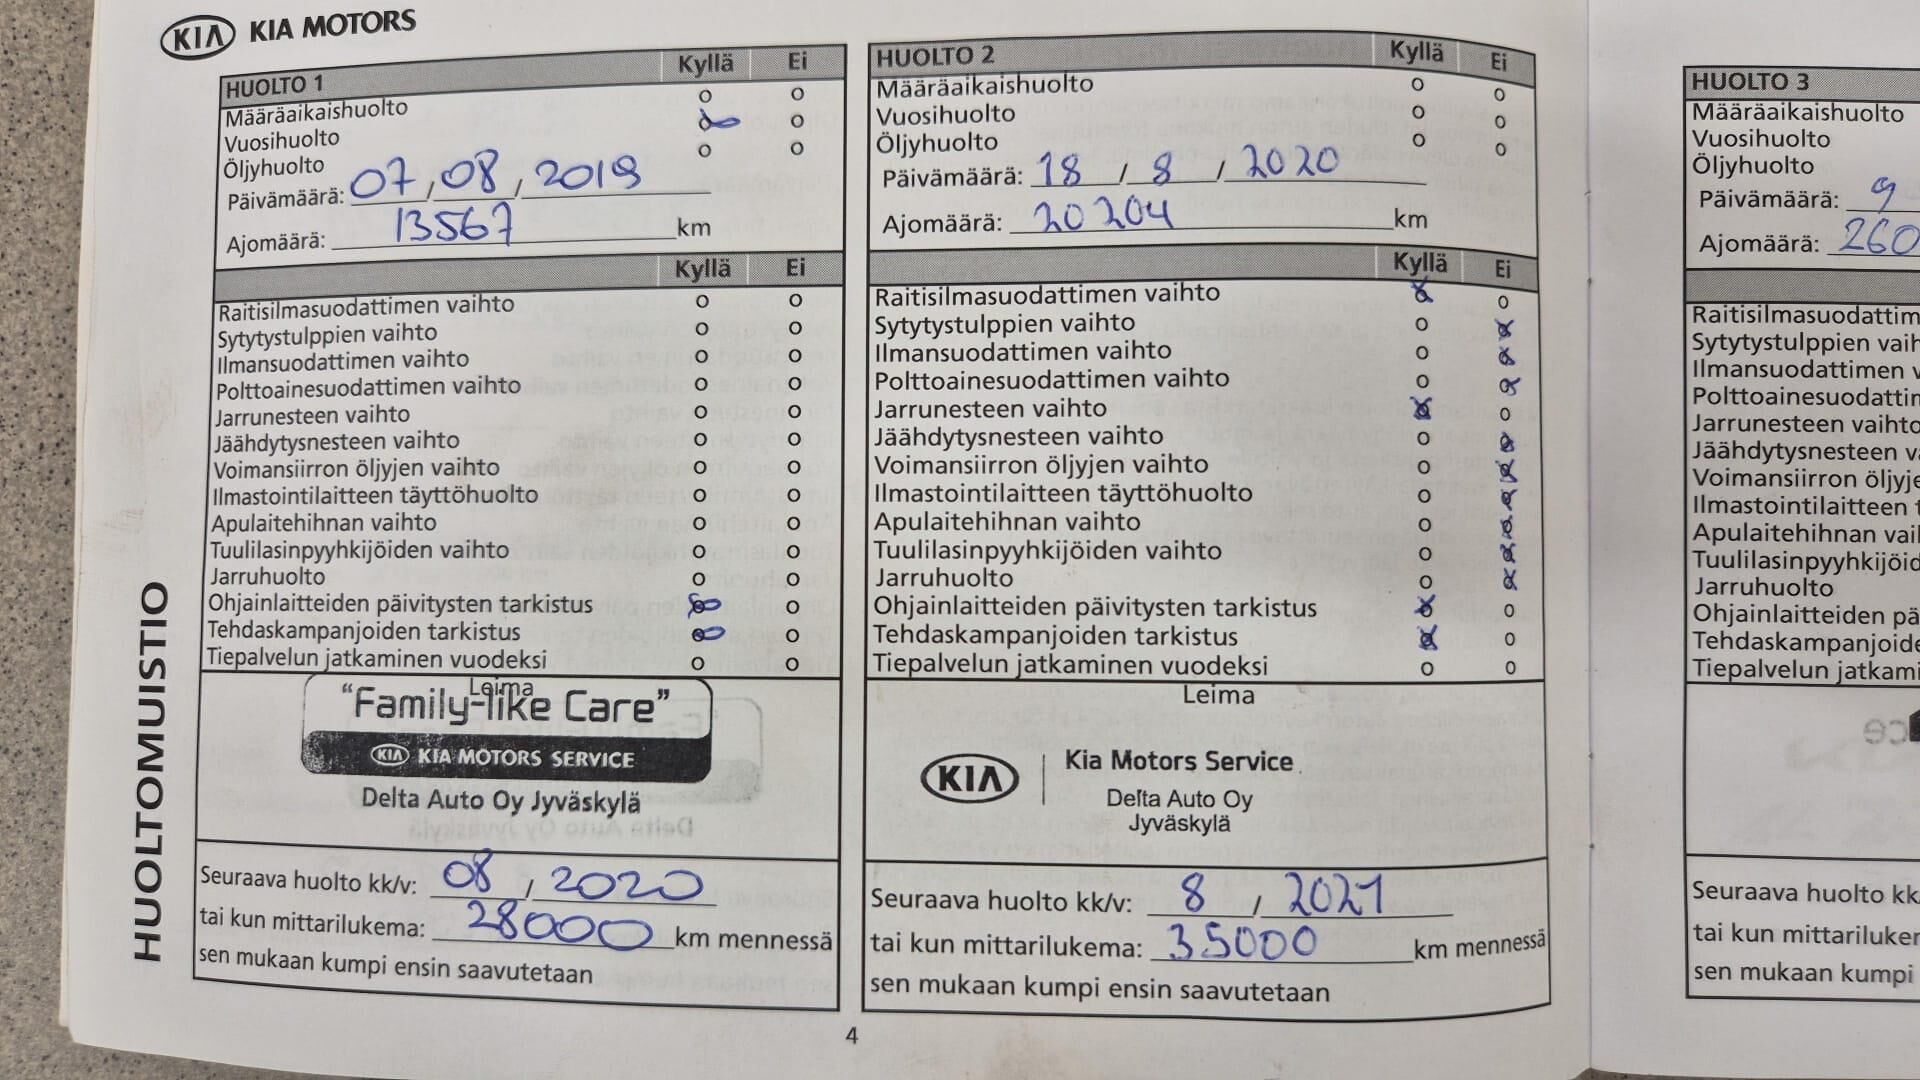 KIA KIA MOTORS
HUOLTOMUISTIO
HUOLTO 1 Kyllä Ei
Määräaikaishuolto o o
Vuosihuolto o o
Öljyhuolto o o
Päivämäärä: 07, 08, 2019
Ajomäärä: 13567 km
Kyllä Ei
Raitisilmasuodattimen vaihto o o
Sytytystulppien vaihto o o
Ilmansuodattimen vaihto o o
Polttoainesuodattimen vaihto o o
Jarrunesteen vaihto o o
Jäähdytysnesteen vaihto o o
Voimansiirron öljyjen vaihto o o
Ilmastointilaitteen täyttöhuolto o o
Apulaitehihnan vaihto o o
Tuulilasinpyyhkijöiden vaihto o o
Jarruhuolto o o
Ohjainlaitteiden päivitysten tarkistus o o
Tehdaskampanjoiden tarkistus o o
Tiepalvelun jatkaminen vuodeksi o o
Leima
"Family-like Care"
KIA KIA MOTORS SERVICE
Delta Auto Oy Jyväskylä
Seuraava huolto kk/v: 08 / 2020
tai kun mittarilukema: 28000 km mennessä
sen mukaan kumpi ensin saavutetaan
HUOLTO 2 Kyllä Ei
Määräaikaishuolto o o
Vuosihuolto o o
Öljyhuolto o o
Päivämäärä: 18 / 8 / 2020
Ajomäärä: 20 204 km
Kyllä Ei
Raitisilmasuodattimen vaihto x o
Sytytystulppien vaihto o x
Ilmansuodattimen vaihto o x
Polttoainesuodattimen vaihto o x
Jarrunesteen vaihto x o
Jäähdytysnesteen vaihto o x
Voimansiirron öljyjen vaihto o x
Ilmastointilaitteen täyttöhuolto o x
Apulaitehihnan vaihto o x
Tuulilasinpyyhkijöiden vaihto o x
Jarruhuolto o x
Ohjainlaitteiden päivitysten tarkistus x o
Tehdaskampanjoiden tarkistus x o
Tiepalvelun jatkaminen vuodeksi o o
Leima
KIA Kia Motors Service
Delta Auto Oy
Jyväskylä
Seuraava huolto kk/v: 8 / 2021
tai kun mittarilukema: 35000 km mennessä
sen mukaan kumpi ensin saavutetaan
4
HUOLTO 3
Määräaikaishuolto
Vuosihuolto
Öljyhuolto
Päivämäärä: 9
Ajomäärä: 260
Raitisilmasuodattim
Sytytystulppien vaih
Ilmansuodattimen v
Polttoainesuodattim
Jarrunesteen vaihto
Jäähdytysnesteen va
Voimansiirron öljyje
Ilmastointilaitteen t
Apulaitehihnan vai
Tuulilasinpyyhkijöid
Jarruhuolto
Ohjainlaitteiden pä
Tehdaskampanjoide
Tiepalvelun jatkami
Seuraava huolto kk
tai kun mittariluker
sen mukaan kumpi